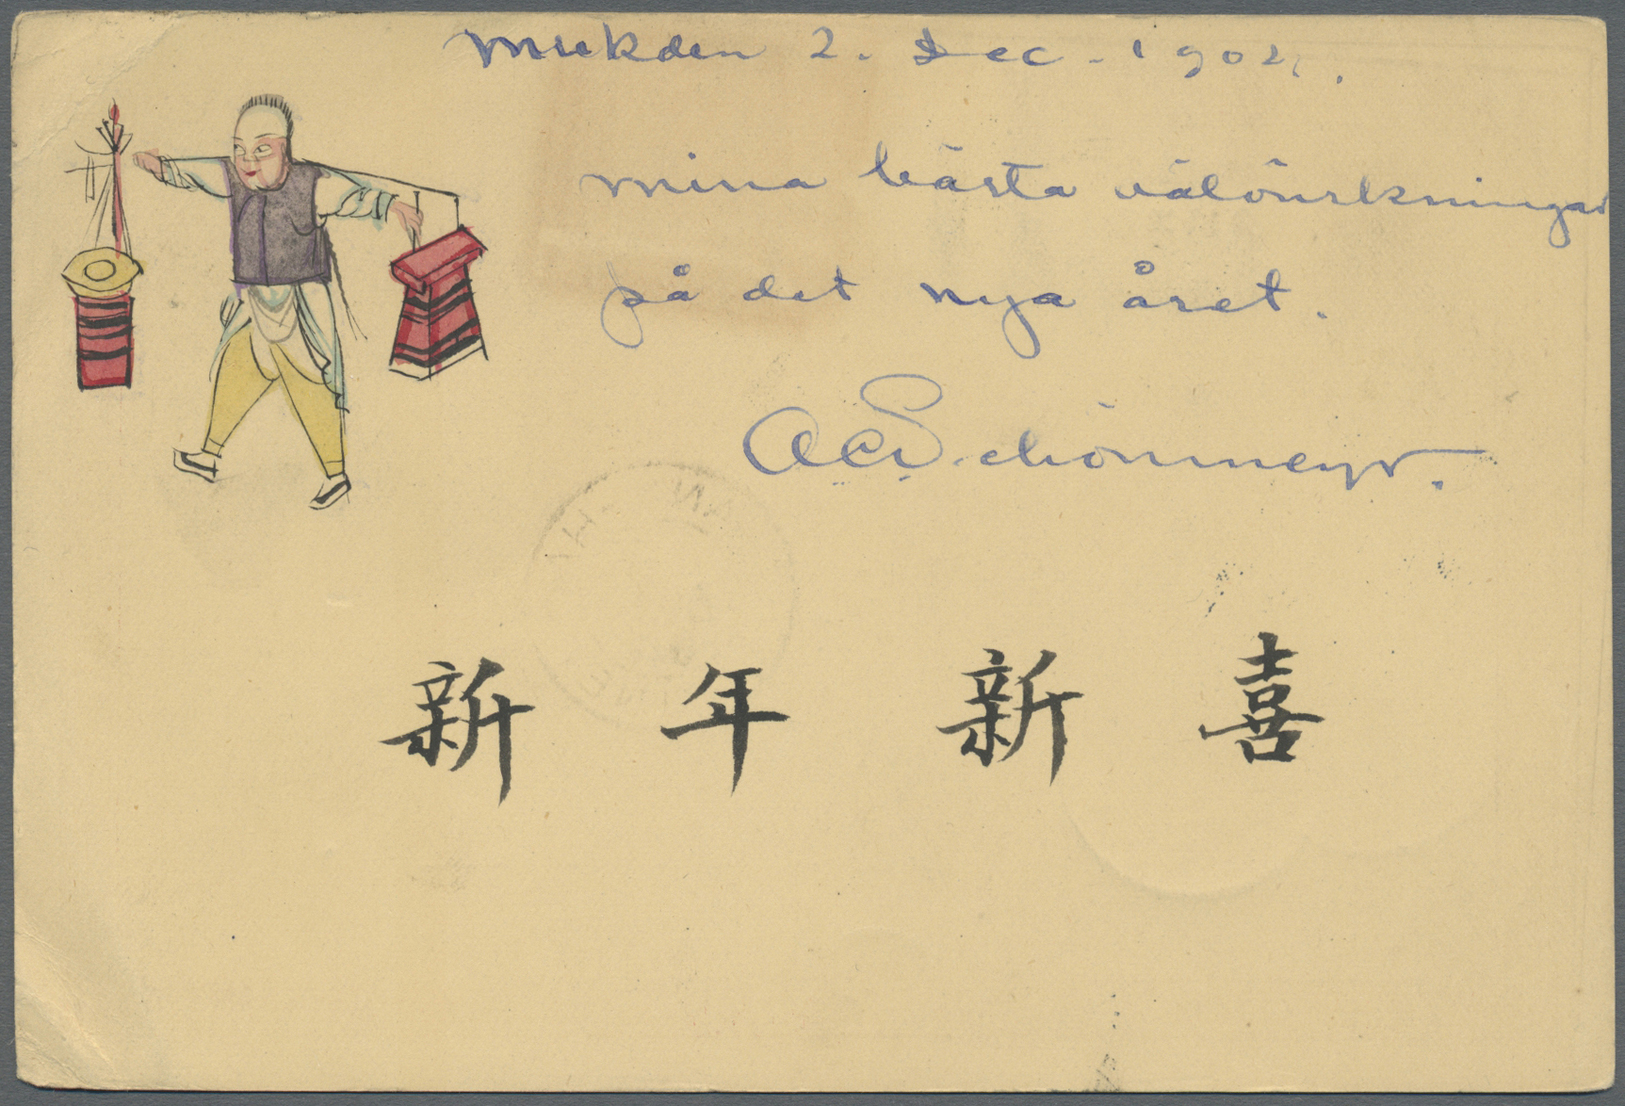 Mukden 2. Dec. 1902.
mina bästa välönskningar
på det nya året.
Schönmeyr.
新年新喜